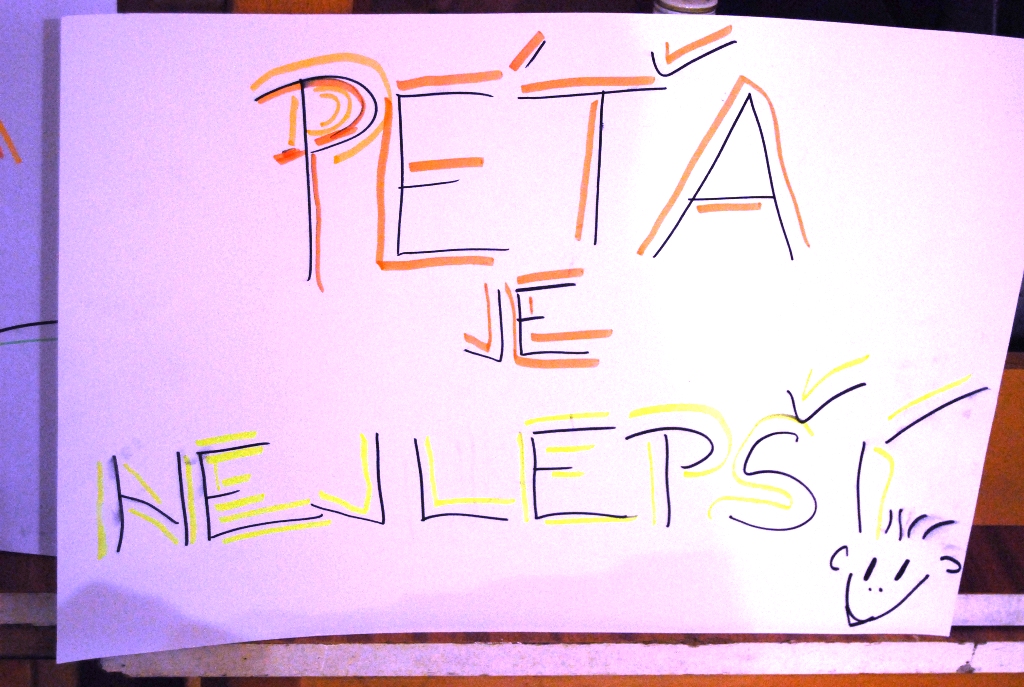 PÉŤA
JE
NEJLEPŠÍ